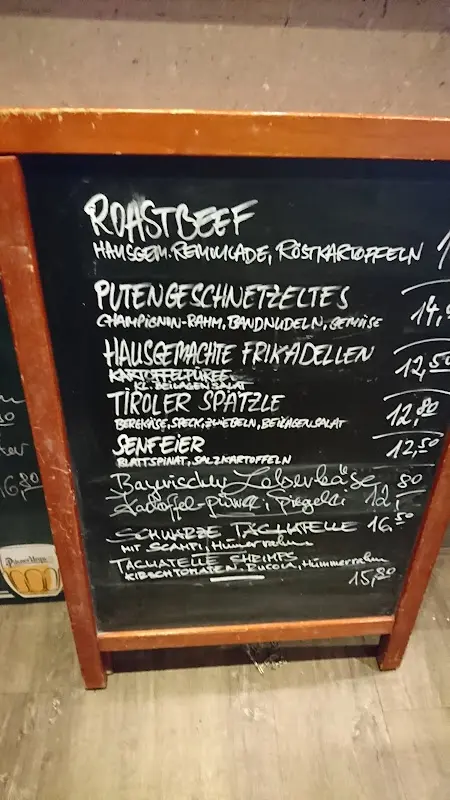 ROASTBEEF
HAUSGEM. REMOULADE, RÖSTKARTOFFELN 1
PUTENGESCHNETZELTES
CHAMPIGNON-RAHM, BANDNUDELN, GEMÜSE 14,
HAUSGEMACHTE FRIKADELLEN 12,50
KARTOFFELPÜREE
KL. BEILAGENSALAT
TIROLER SPÄTZLE 12,80
BERGKÄSE, SPECK, ZWIEBELN, BEILAGENSALAT
SENFEIER 12,50
BLATTSPINAT, SALZKARTOFFELN
Bayrischer Leberkäse
Kartoffel-püree, Spiegelei 12,80
SCHWARZE TAGLIATELLE 16,50
MIT SCAMPI, Hummerrahm
TAGLIATELLE SHRIMPS
KIRSCHTOMATEN, RUCOLA, Hummerrahm
15,80
6,80